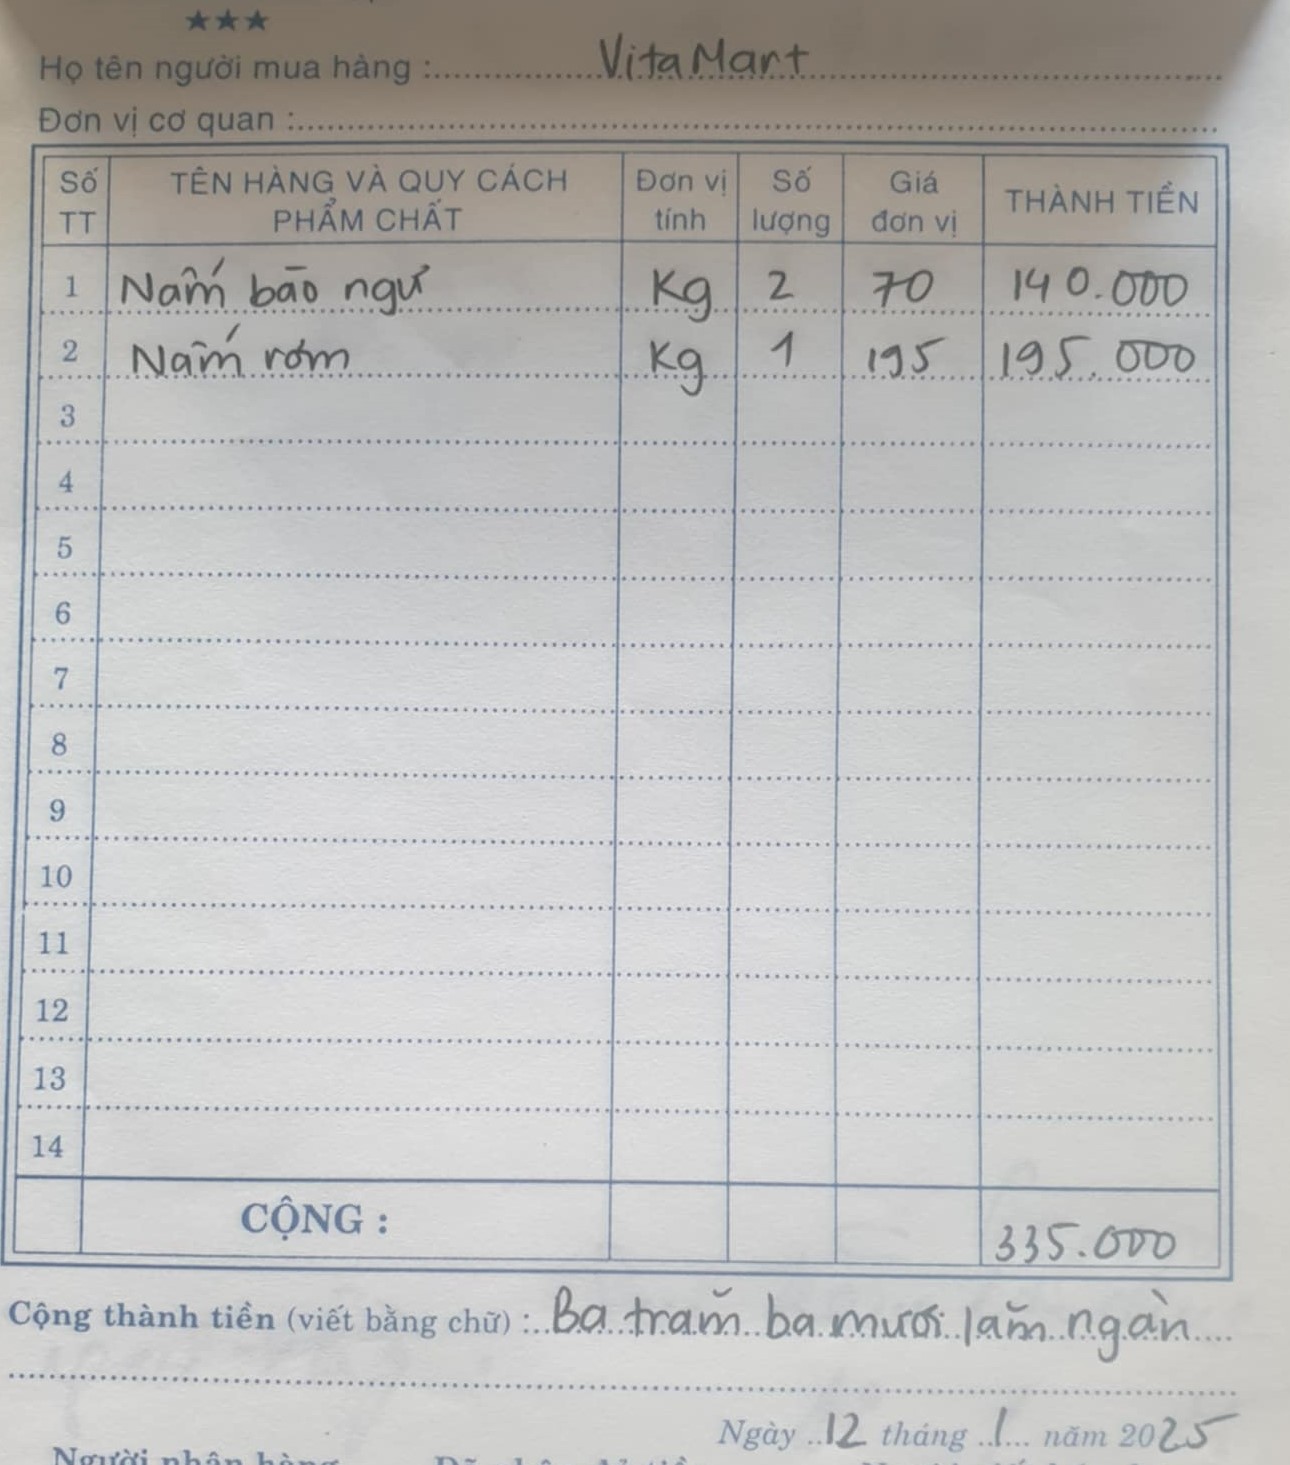 ★★★
Họ tên người mua hàng : VitaMart
Đơn vị cơ quan :
Số TT TÊN HÀNG VÀ QUY CÁCH PHẨM CHẤT Đơn vị tính Số lượng Giá đơn vị THÀNH TIỀN
1 Nấm bào ngư Kg 2 70 140.000
2 Nấm rơm Kg 1 195 195.000
3
4
5
6
7
8
9
10
11
12
13
14
CỘNG : 335.000
Cộng thành tiền (viết bằng chữ) : Ba trăm ba mươi lăm ngàn
Ngày 12 tháng 1 năm 2025
Người nhận hàng